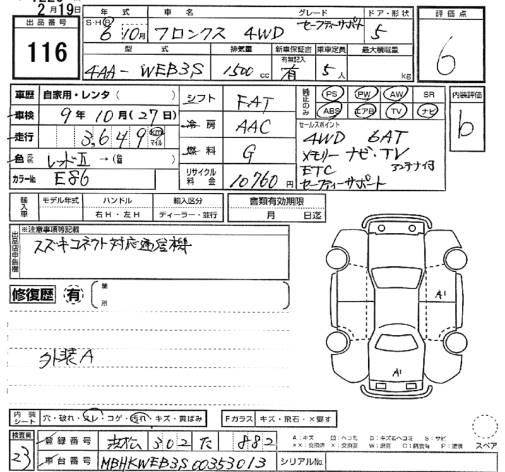 2月19日
出品番号
116
年式 車名 グレード ドア・形状
S・H・R 6年10月 フロンクス 4WD セーフティーサポート 5
型式 排気量 新車保証書 乗車定員 最大積載量
有無記入
4AA-WEB3S 1500cc 有 5人 kg
評価点
6
車歴 自家用・レンタ
車検 9年10月(27日)
走行 3,649 km マイル
色 レッドⅡ→(
カラーNo E86
シフト FAT
冷房 AAC
燃料 G
リサイクル料金 10760円
純正のみ PS PW AW SR
ABS エアB TV ナビ
セールスポイント
4WD 6AT
メモリーナビ・TV
ETC アンテナ付
セーフティーサポート
内装評価
b
輸入車 モデル年式 ハンドル 輸入区分
右H・左H ディーラー・並行
書類有効期限
月 日迄
※注意事項等記載
出品店申告欄
スズキコネクト対応通信機
修復歴 有
箇所
外装A
A1
A1
内装シート 穴・破れ・スレ・コゲ・汚れ・キズ・黄ばみ
Fガラス キズ・飛石・×要す
検査員
23
登録番号 浜松 302 た 882
車台番号 MBHKWEB3S00353013
シリアルNo.
スペア